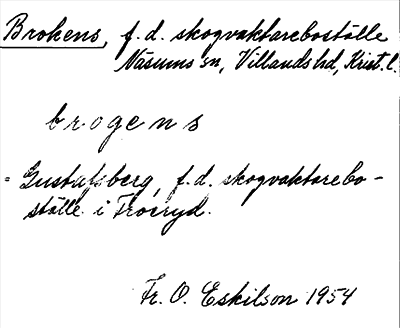 Brokens, f.d. skogvaktareboställe
Näsums sn, Villands hd, Krist. l.
brogens
= Gustafsberg, f.d. skogvaktarebo-
ställe i Froeryd.
Fr. O. Eskilson 1954